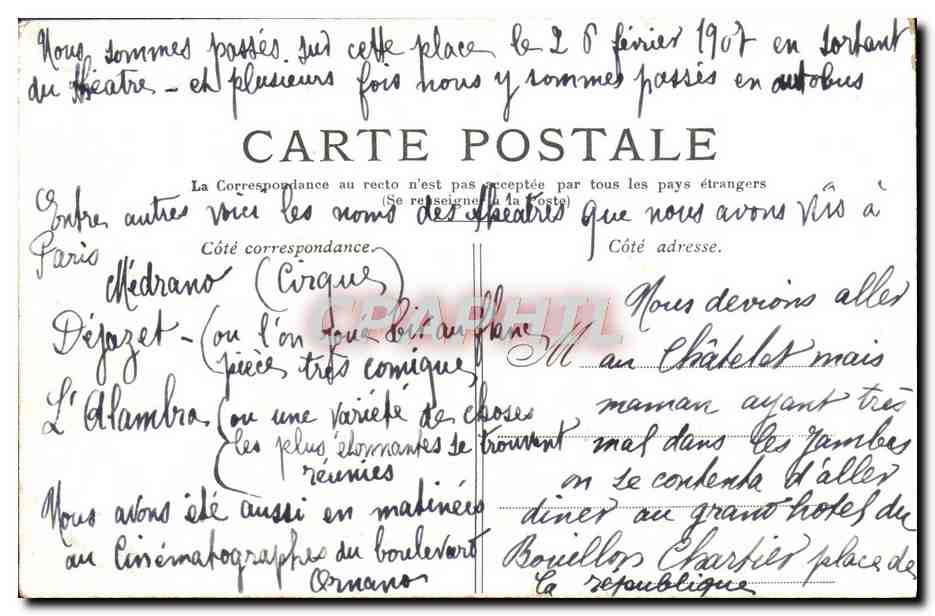 Nous sommes passés sur cette place le 26 février 1907 en sortant
du théatre - et plusieurs fois nous y sommes passés en autobus
CARTE POSTALE
La Correspondance au recto n'est pas acceptée par tous les pays étrangers
(Se renseigner à la Poste)
Entre autres voici les noms des théatres que nous avons vus à
Paris
Côté correspondance.
Médrano (Cirque)
Déjazet - (ou l'on joué
pièce très comique
L'Alambra (ou une variété de choses
les plus étonnantes se trouvent
réunies
Nous avons été aussi en matinées
au Cinématographe du boulevard
Ornano
Côté adresse.
Nous devions aller
M au Châtelet mais
maman ayant très
mal dans les jambes
on se contenta d'aller
diner au grand hotel du
Bouillon Chartier place de
la republique
CPAPHIL